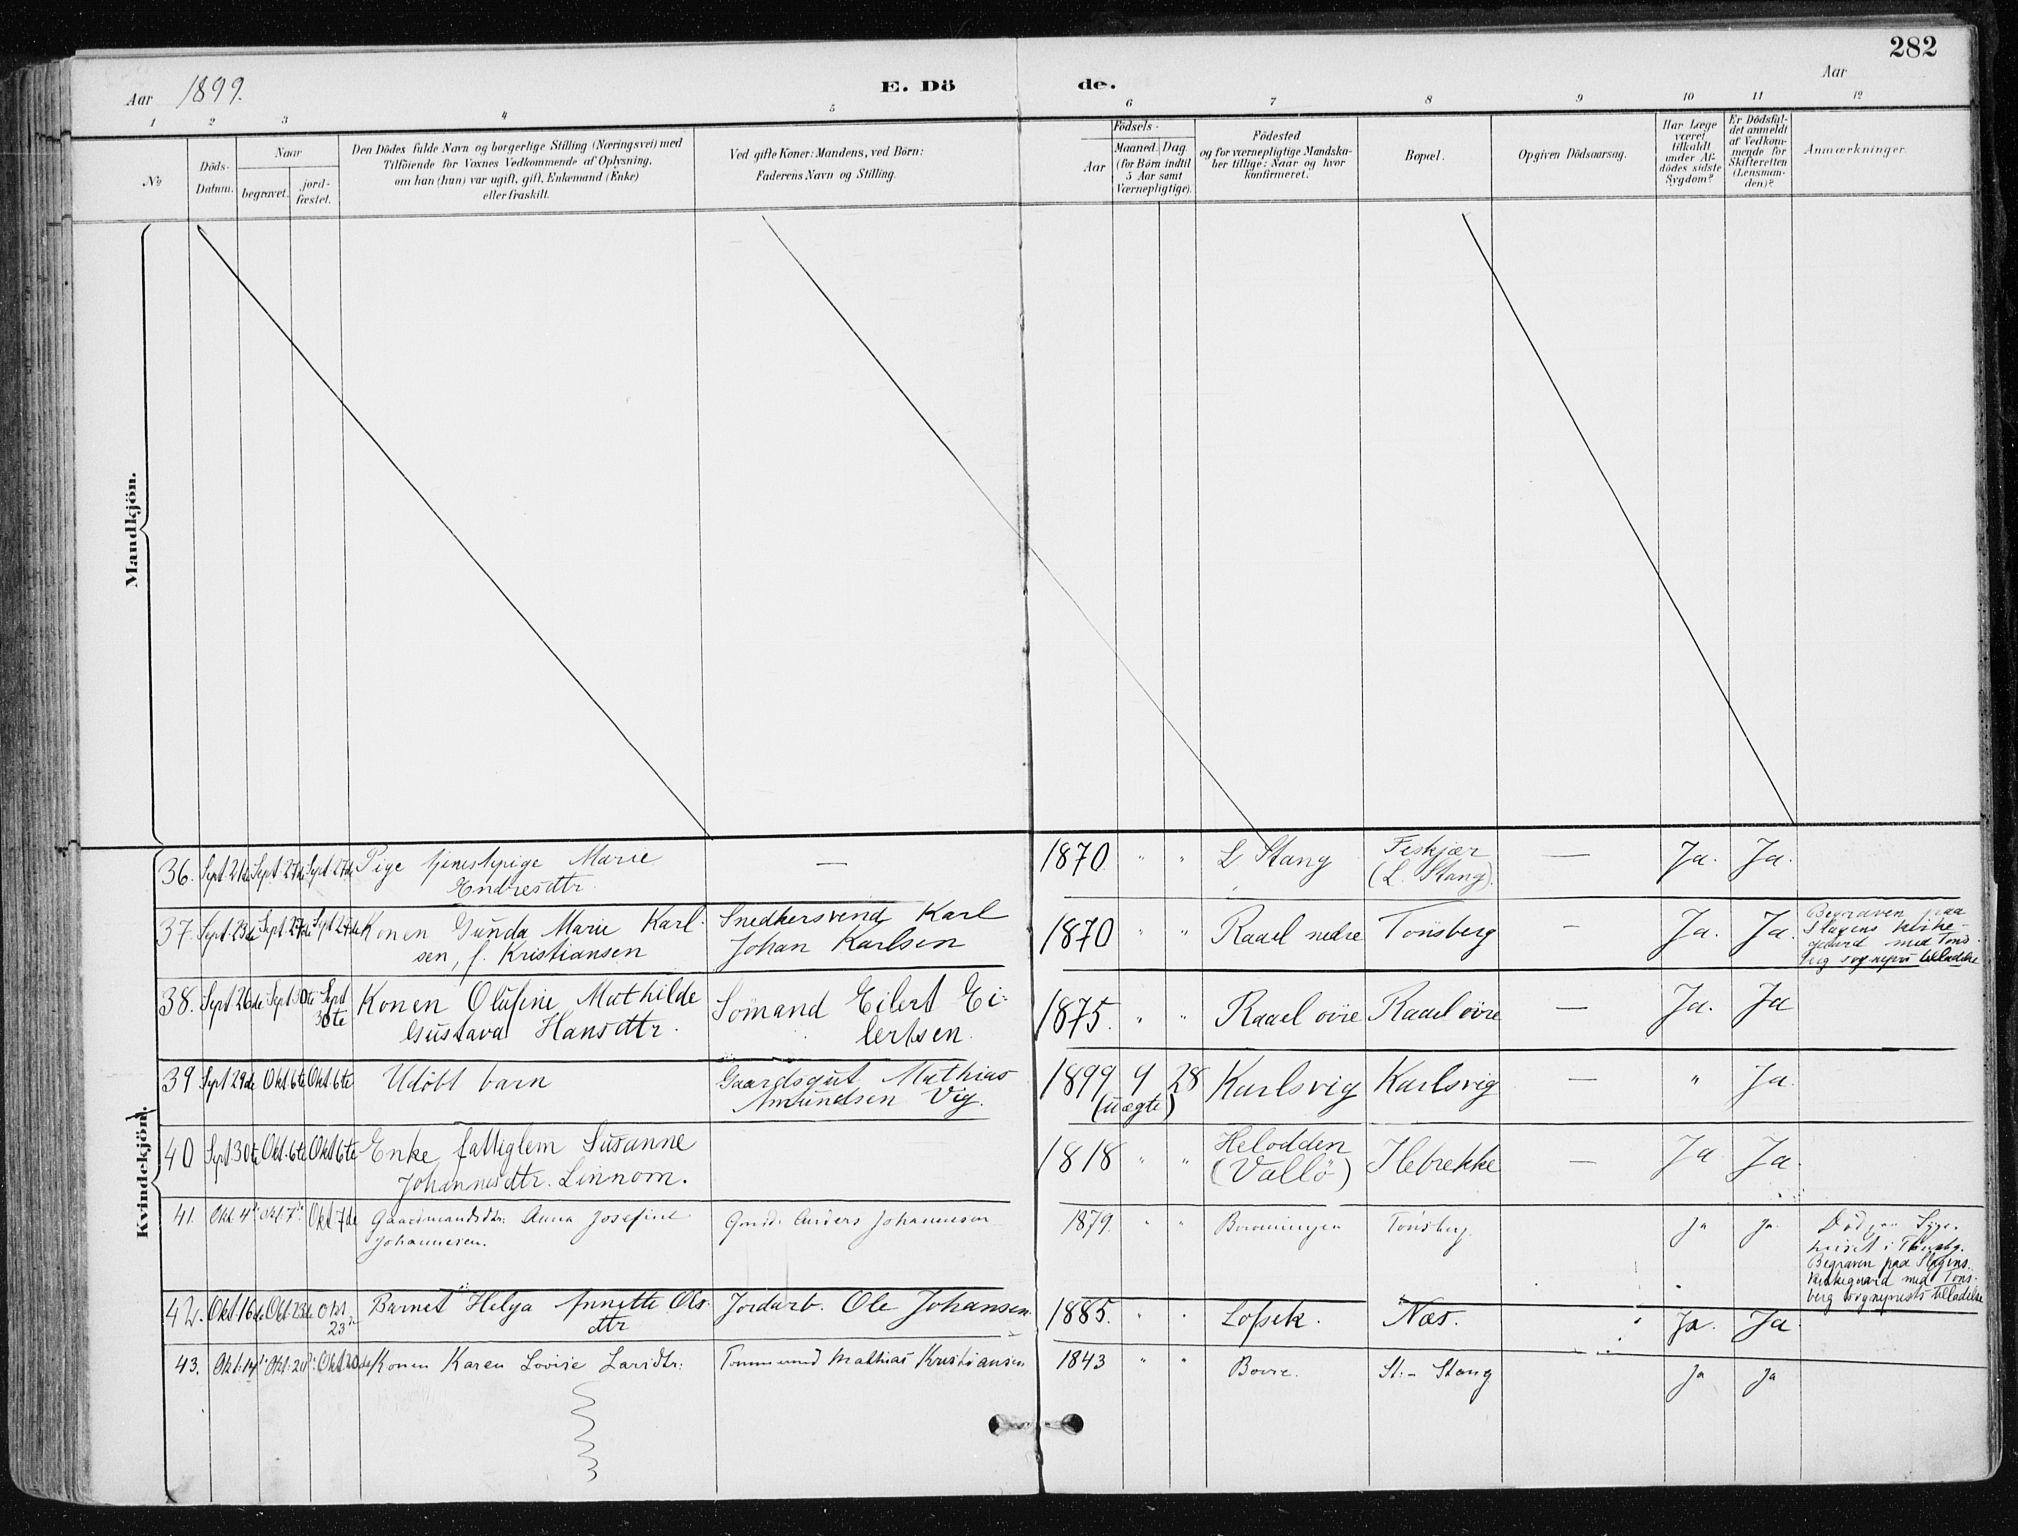 282
Aar 1899.
E. Dö de.
Aar
1 2 3 4 5 6 7 8 9 10 11 12
No
Döds-Datum.
Naar
begravet. jord-fæstet.
Den Dödes fulde Navn og borgerlige Stilling (Næringsvei) med
Tilföiende for Voxnes Vedkommende af Oplysning,
om han (hun) var ugift, gift, Enkemand (Enke)
eller fraskilt.
Ved gifte Koner: Mandens, ved Börn:
Faderens Navn og Stilling.
Födsels-
Aar
Maaned. Dag.
(for Börn indtil
5 Aar samt
Værnepligtige).
Födested
og for værnepligtige Mandska-
ber tillige: Naar og hvor
konfirmeret.
Bopæl.
Opgiven Dödsaarsag.
Har Læge
været
tilkaldt
under Af-
dödes sidste
Sygdom?
Er Dödsfal-
det anmeldt
af Vedkom-
mende for
Skifteretten
(Lensman-
den)?
Anmærkninger.
Mandkjön.
Kvindekjön.
36. Sept 21de Sept 27de Sept 27de Pige tjenestepige Marie — 1870 " " L Stang Feskjær — Ja. Ja.
Endresdtr. (L. Stang).
37. Sept 23de Sept 27de Sept 27de Konen Gunda Marie Karl- Snedkersvend Karl 1870 " " Raael nedre Tönsberg — Ja. Ja.
sen, f. Kristiansen Johan Karlsen
Begraven paa
Slagens kirke-
gaard med Töns-
berg sogneprs tilladelse
38. Sept 26de Sept 30te Sept 30te Konen Olufine Mathilde Sömand Eilert Ei- 1875. " " Raael övre Raael övre — Ja. Ja
Gustava Hansdtr. lertsen.
39 Sept 29de Okt 6te Okt 6te Udöbt barn Gaardsgut Mathias 1899 9 28 Karlsvig Karlsvig — " Ja.
Amundsen Vig. (uægte)
40 Sept 30te Okt 6te Okt 6te Enke fattiglem Susanne 1818 " " Helodden Ilebrekke — Ja Ja.
Johannesdtr. Linnom. (Vallö)
41. Okt. 4de Okt. 7de Okt 7de Gaardmandsdtr: Anna Josefine Gmd. Anders Johannesen 1879. " " Tönsberg. Ja Ja.
Johannesen.
Död paa Syge-
huset i Tönsbg.
Begraven paa Slagens
kirkegaard med Töns-
berg sogneprests tilladelse
42. Okt 16de Okt 23de Okt. 23de Barnet Helga Annette Ols- Jordarb. Ole Johansen. 1885. " " Næs. Ja. Ja
dtr
43. Okt: 14de Okt: 20de Okt 20de Konen Karen Lovise Larsdtr: Tömmermd Mathias Kristiansen 1843 " " St:- Stang Ja Ja